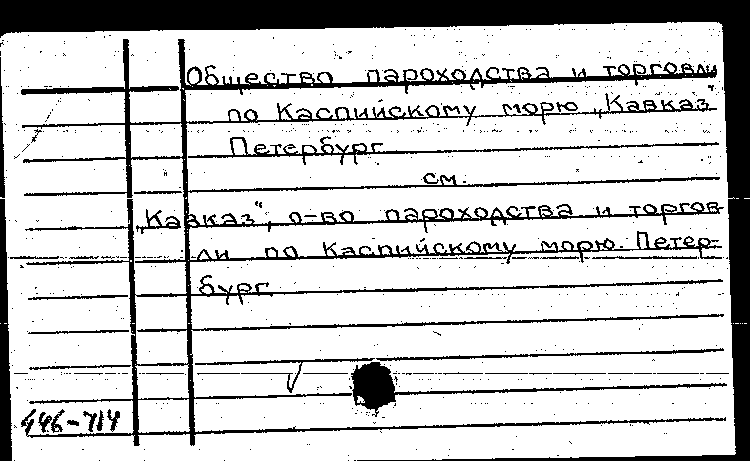 Общество пароходства и торговли
по Каспийскому морю „Кавказ"
Петербург
см.
„Кавказ", о-во пароходства и торгов-
ли по Каспийскому морю. Петер-
бург.
446-714